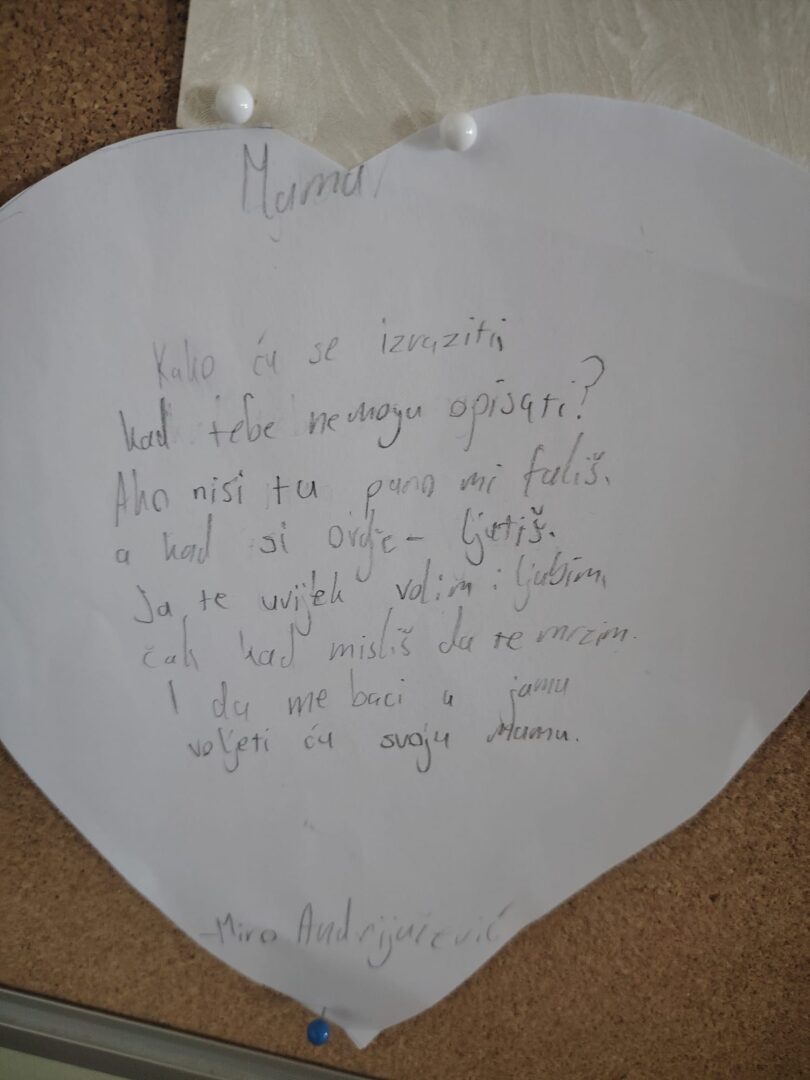 Mama,
Kako ću se izraziti,
kad tebe nemogu opisati?
Ako nisi tu puno mi fališ.
a kad si ovdje - ljutiš.
Ja te uvijek volim i ljubim,
čak kad misliš da te mrzim.
I da me baci u jamu
voljeti ću svoju Mamu.
-Miro Andrijačević